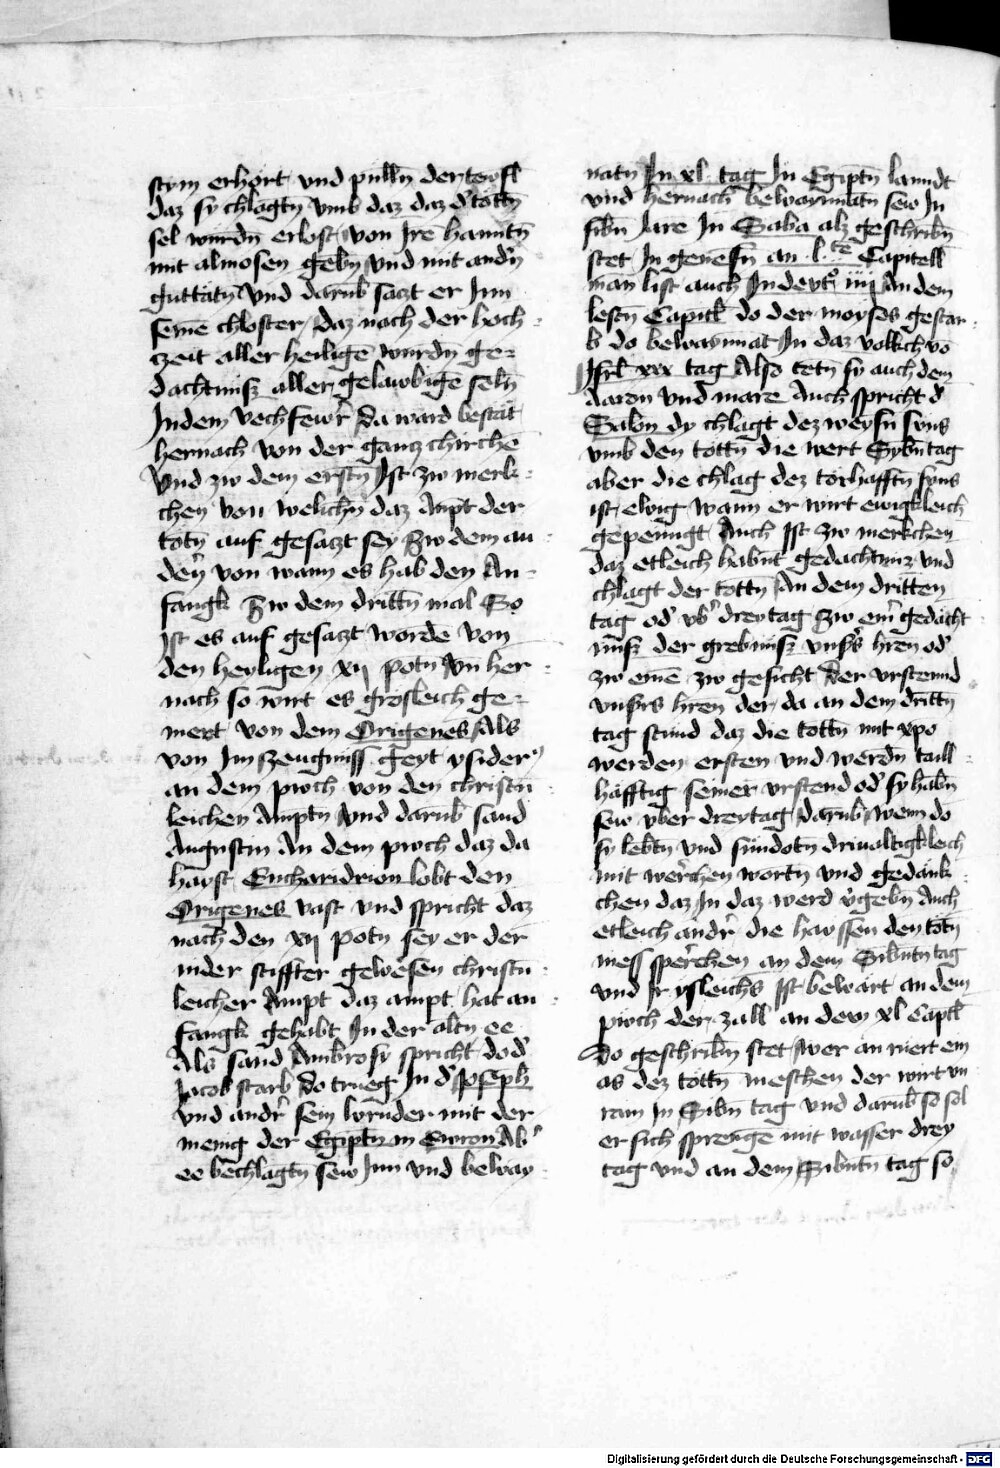 stym erhört vnd pülln der tewfl
daz sy chlagtn vmb daz daz d' tottn
sel wurdn erlost von Ire hanntn
mit almosen gebn vnd mit andn
guttatn vnd darub sazt er Inn
seine chloster daz nach der hoch
czeit aller heilige wurdn ge-
dachtnusz aller gelawbige seln
Indem vechfewr da ward bestat
hernach von der gantz chirche
Vnd zw dem erstn Ist zw merk-
chen von welichn daz Ampt der
totn auf gesatzt sey Zw dem an-
den von wann es hab den An-
fangk Zw dem drittn mal So
Ist es auf gesatzt worde von
den heyligen xij potn vn her
nach so wirt es grosleich ge-
mert von dem Origenes Als
von Im zeugnuss geyt ysider
an dem pwch von den christn
leichen Amptn vnd darub sand
Augustin An dem pwch daz da
hayst Encharidrion lobt den
Origenes vast vnd spricht daz
nach den xij potn sey er der
ander stiffter gewesen christn-
leicher Ampt daz ampt hat an-
fangk gehabt In der altn ee
Als sand Ambrosy spricht do d'
Jacob starb do trueg In d' Joseph
vnd andr sein bruder mit der
menig der Egiptn in Ewron Ab'
ee bechlagtn sew Inn vnd beway
natn In xl tag In Egiptn lanndt
vnd hernach bewaynnatn sew In
sibn Jare In Saba alz geschribn
stet In genesn an l.te Capitell
man list auch In deytro iiij An dem
lestn Capitl do der moyses gestar-
b do bewaynnat In daz volkch vo
Isrl xxx tag Also tetn sy auch dem
Aaron vnd mare Auch spricht d'
Salon dy chlagt dez weysn suns
vmb den tottn die wert Sybn tag
aber die chlag dez torhafftn suns
ist ewig wann er wirt ewigkleich
gepeinigt Auch Ist zw merkchen
daz etleich habnt gedachtnuz vnd
chlagt der tottn An dem dritten
tag od' vb' drey tag Zw einr gedacht
nusz der grebnusz vnsrs hren od'
zw eine zw gesicht der vrstennd
vnsrs hren der da an dem drittn
tag stund daz die tottn mit xpo
werden ersten vnd werdn taill
hafftig seiner vrstend od' sy habn
sew vber drey tag darub wenn do
sy lebtn vnd sundotn drivaltigkleich
mit werchen wortn vnd gedank-
chen daz In daz werd v'gebn Auch
etleich andr die hayssen den totn
mess sprechen an dem Sibntn tag
vnd Ir ysleichs Ist bewart an dem
pwch der zall an dem xl Captl
do geschribn stet wer an ruert ein
as dez tottn meschen der wirt vn
rain In Sibn tag vnd darub so sol
er sich sprenge mit wasser drey
tag vnd an dem Sibntn tag so
Digitalisierung gefördert durch die Deutsche Forschungsgemeinschaft - DFG